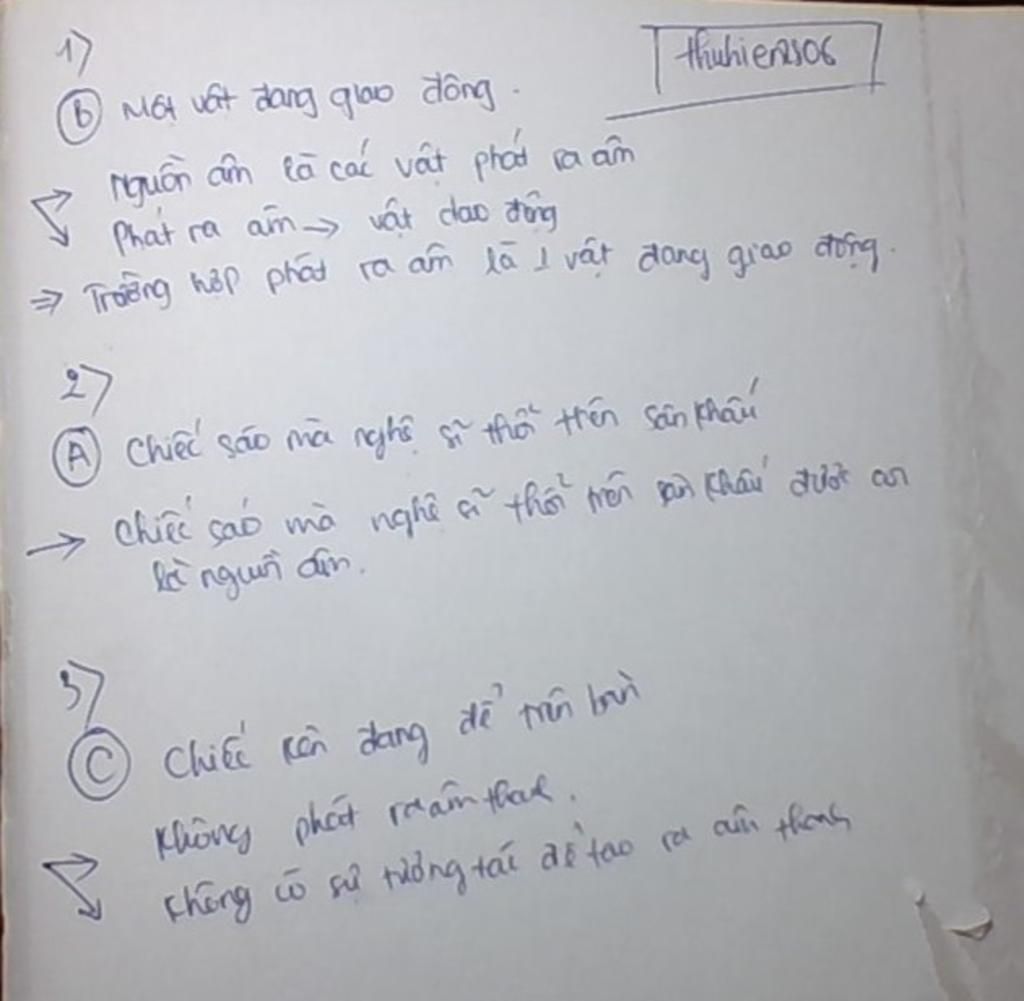 1)
thuhien2806
B Một vật đang giao động.
Nguồn âm là các vật phát ra âm
Phát ra âm → vật dao động
⇒ Trường hợp phát ra âm là 1 vật đang giao động.
2)
A Chiếc sáo mà nghệ sĩ thổi trên sân khấu
→ Chiếc sáo mà nghệ sĩ thổi trên sân khấu được coi
là nguồn âm.
3)
C Chiếc kèn đang để trên bàn
Không phát ra âm thanh.
Không có sự tương tác để tạo ra âm thanh